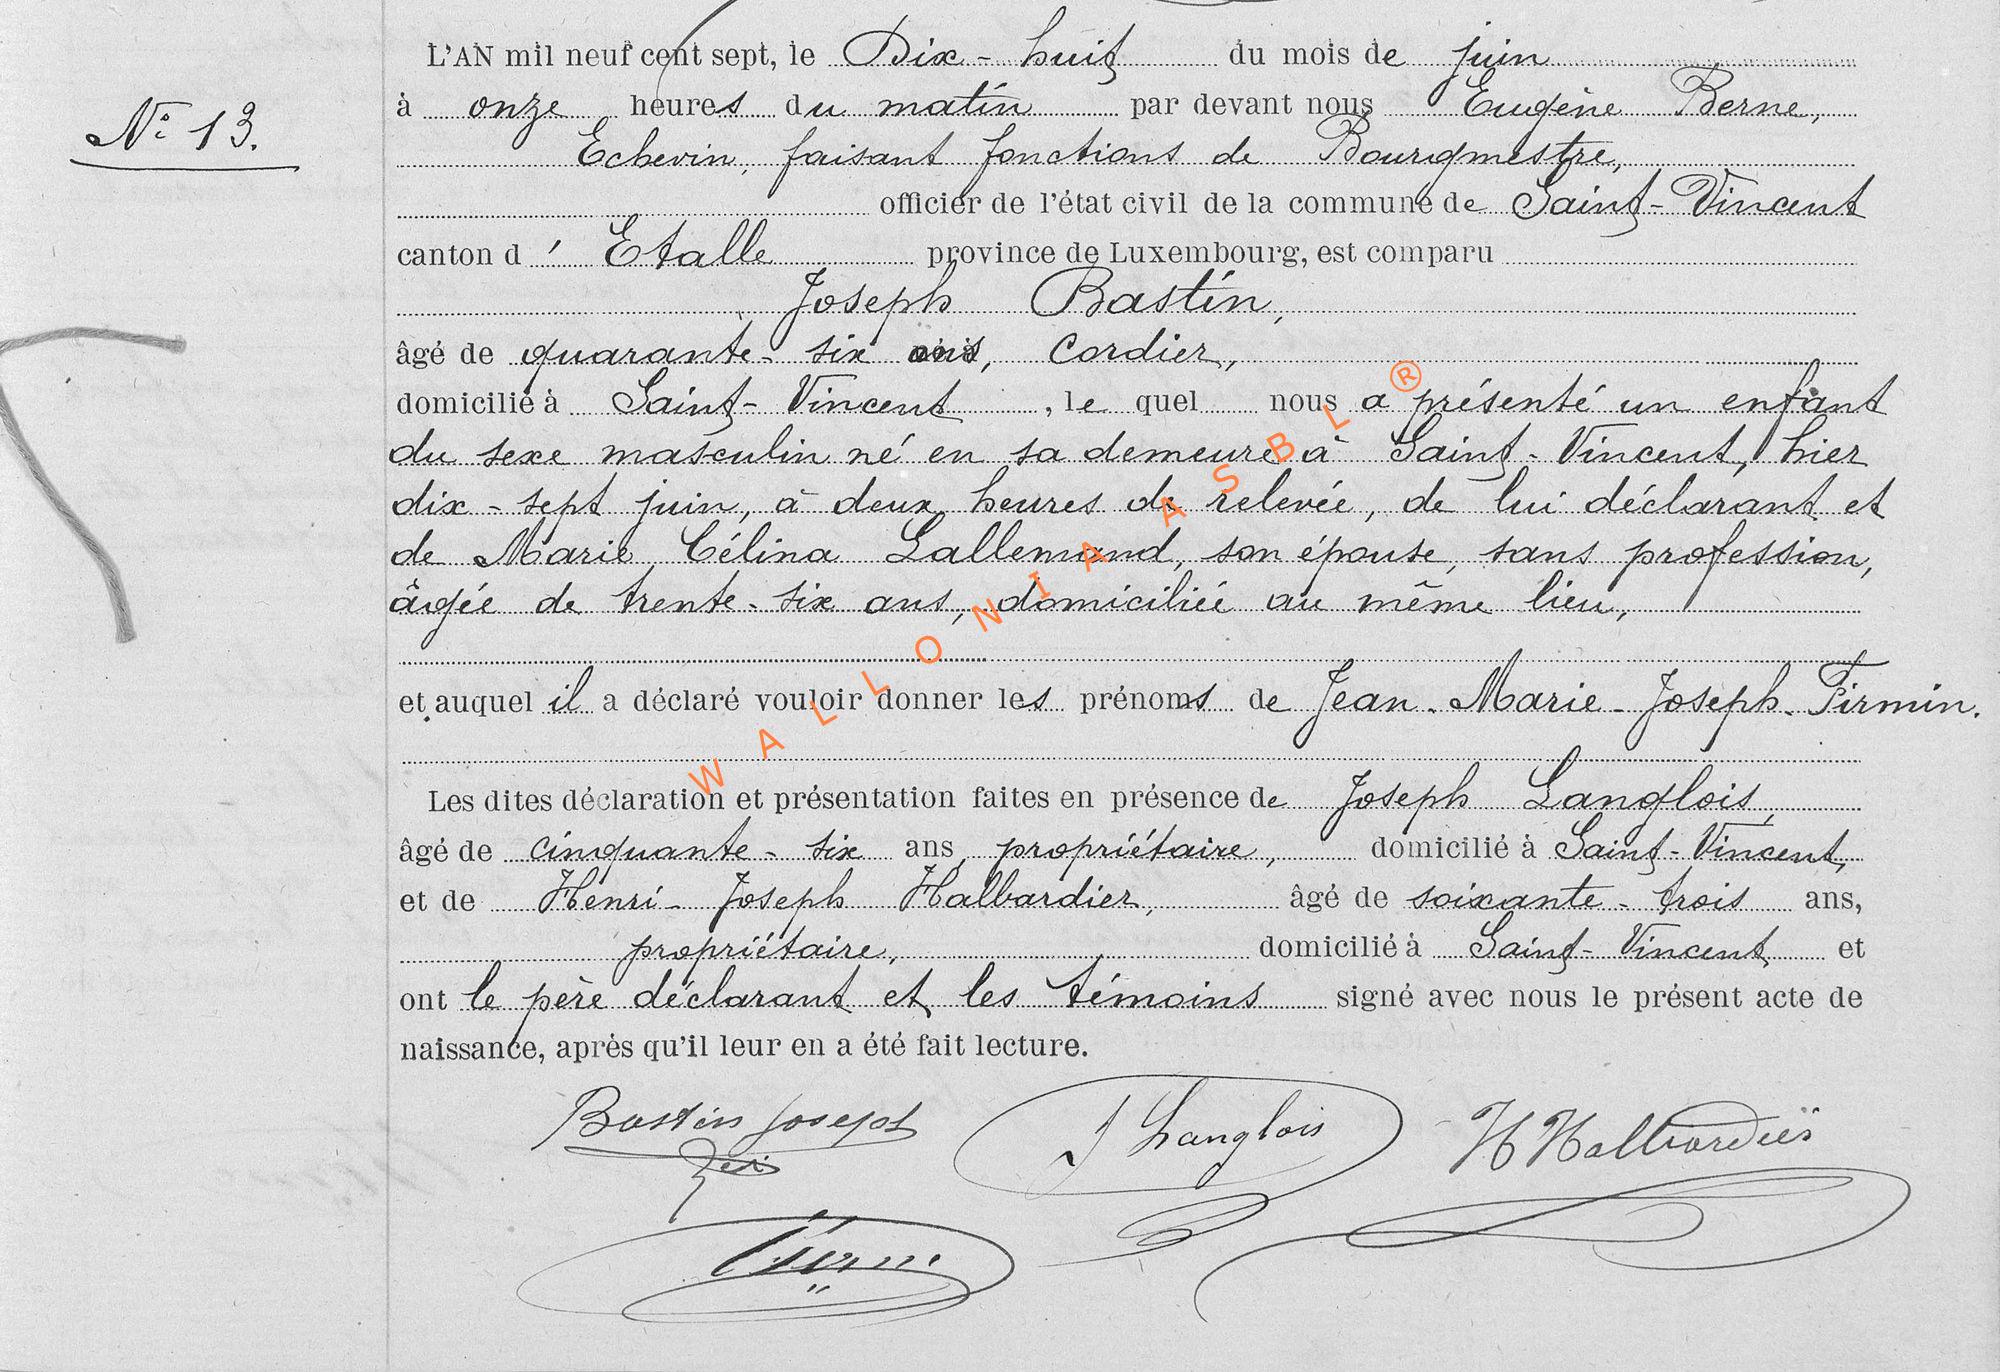 N° 13.
L'AN mil neuf cent sept, le Dix-huit du mois de juin
à onze heures du matin par devant nous Eugène Berne,
Echevin, faisant fonctions de Bourgmestre,
officier de l'état civil de la commune de Saint-Vincent
canton d'Etalle province de Luxembourg, est comparu
Joseph Bastin,
âgé de quarante-six ans, cordier,
domicilié à Saint-Vincent, le quel nous a présenté un enfant
du sexe masculin né en sa demeure à Saint-Vincent, hier
dix-sept juin, à deux heures de relevée, de lui déclarant et
de Marie Célina Lallemand, son épouse, sans profession,
âgée de trente-six ans, domiciliée au même lieu,
et auquel il a déclaré vouloir donner les prénoms de Jean-Marie-Joseph-Firmin.
Les dites déclaration et présentation faites en présence de Joseph Langlois,
âgé de cinquante-six ans, propriétaire, domicilié à Saint-Vincent,
et de Henri-Joseph Halbardier, âgé de soixante-trois ans,
propriétaire, domicilié à Saint-Vincent et
ont le père déclarant et les témoins signé avec nous le présent acte de
naissance, après qu'il leur en a été fait lecture.
Bastin Joseph
J Langlois
H Halbardier
WALLONIA ASBL ®